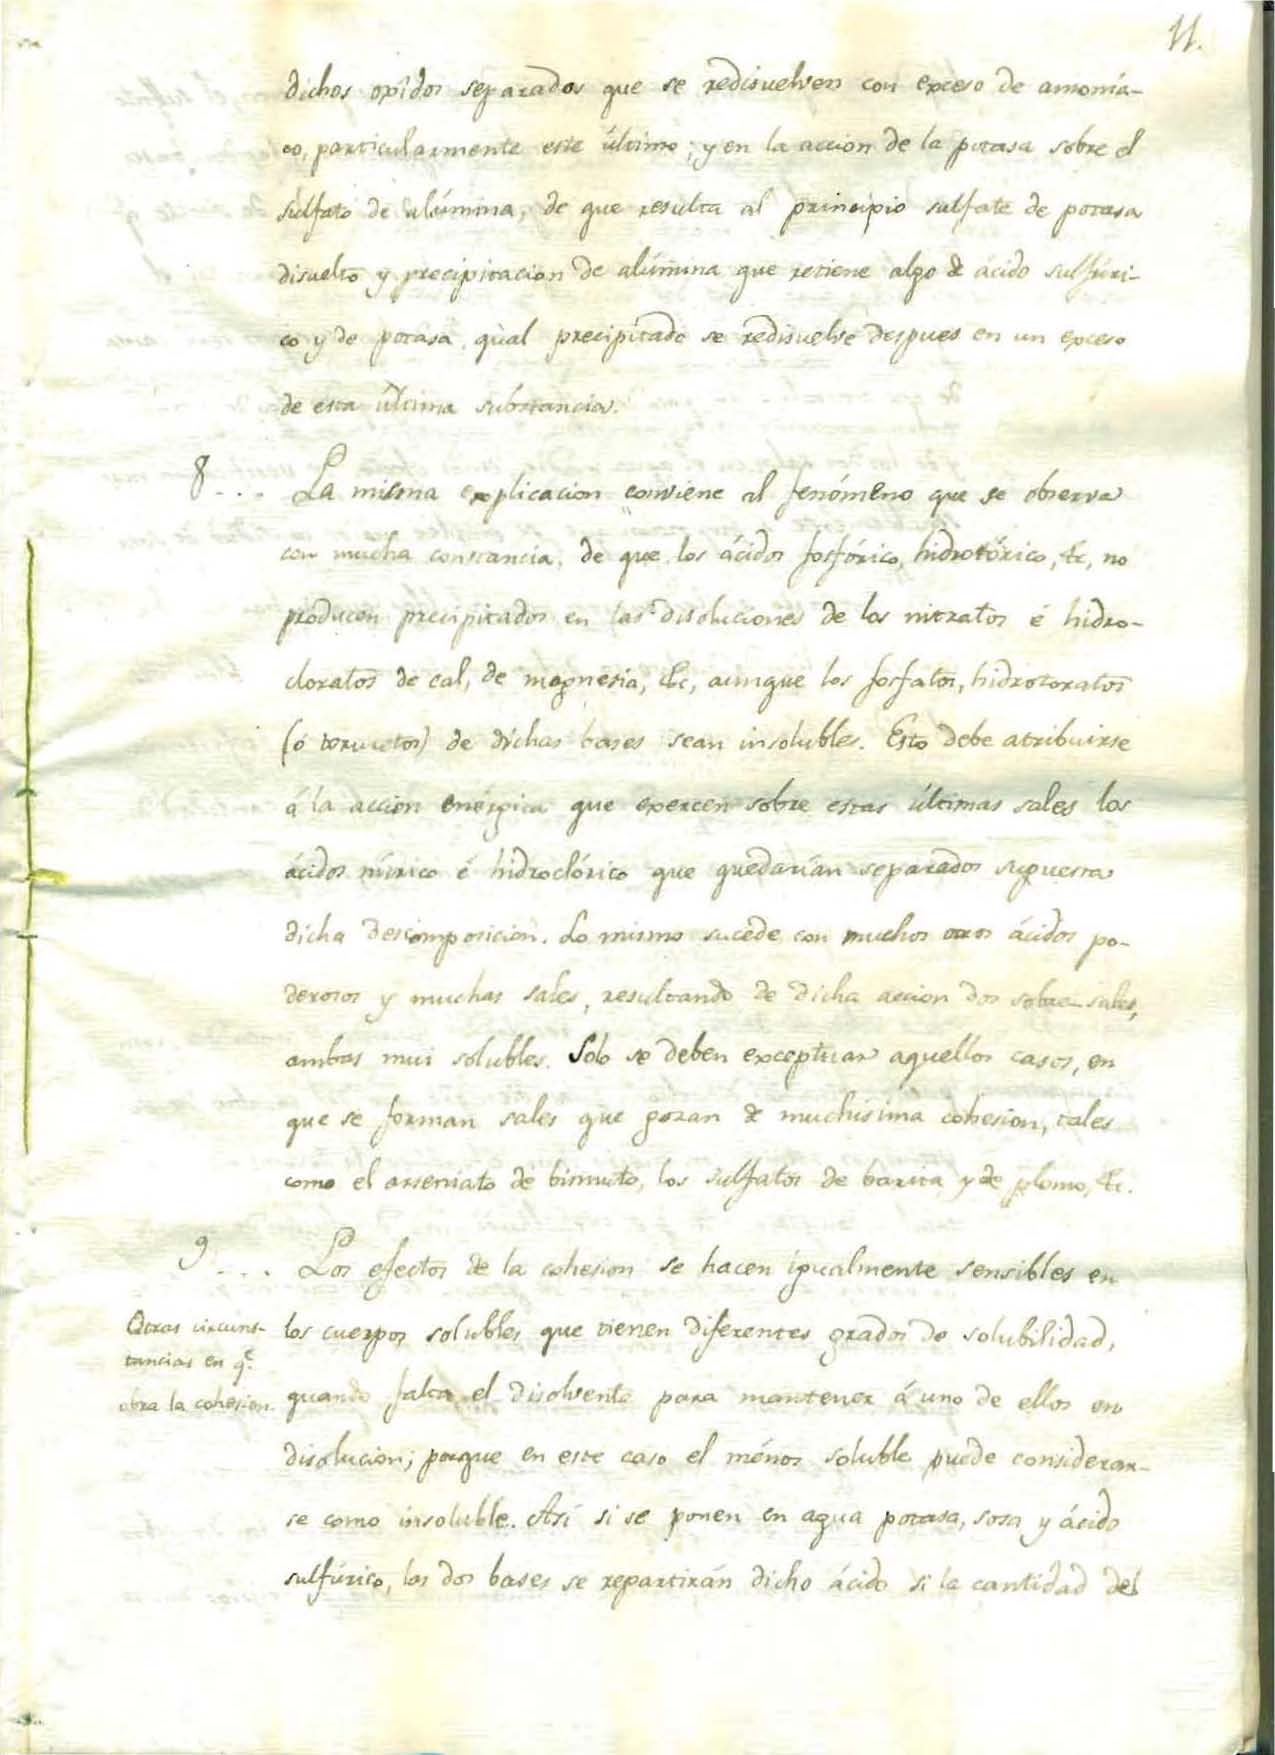 11.
dichos oxîdos separados que se redisuelven con exceso de amonía-
co, particularmente este último; y en la accion de la potasa sobre el
sulfato de alúmina, de que resulta al principio sulfate de potasa
disuelto y precipitacion de alúmina que retiene algo de ácido sulfúri-
co y de potasa, qüal precipitado se redisuelve despues en un exceso
de esta última substancia.
8 . . . La misma explicacion conviene al fenómeno que se observa
con mucha constancia, de que los ácidos fosfórico, hidrotórico, &c, no
producen precipitados en las disoluciones de los nitratos é hidro-
cloratos de cal, de magnesia, &c, aunque los fosfatos, hidrotoratos
(ó toruretos) de dichas bases sean insolubles. Esto debe atribuirse
á la accion enérgica que exercen sobre estas últimas sales los
ácidos nítrico é hidroclórico que quedarían separados supuesta
dicha descomposicion. Lo mismo sucede con muchos otros ácidos po-
derosos y muchas sales, resultando de dicha accion dos sobre-sales,
ambas mui solubles. Solo se deben exceptuar aquellos casos, en
que se forman sales que gozan de muchísima cohesion, tales
como el arseniato de bismuto, los sulfatos de barita y de plomo, &c.
9 . . . Los efectos de la cohesion se hacen igualmente sensibles en
Otras circuns-
tancias en qe.
obra la cohesion.
los cuerpos solubles que tienen diferentes grados de solubilidad,
quando falta el disolvente para mantener á uno de ellos en
disolucion; porque en este caso el ménos soluble puede considerar-
se como insoluble. Así si se ponen en agua potasa, sosa y ácido
sulfúrico, las dos bases se repartirán dicho ácido si la cantidad del